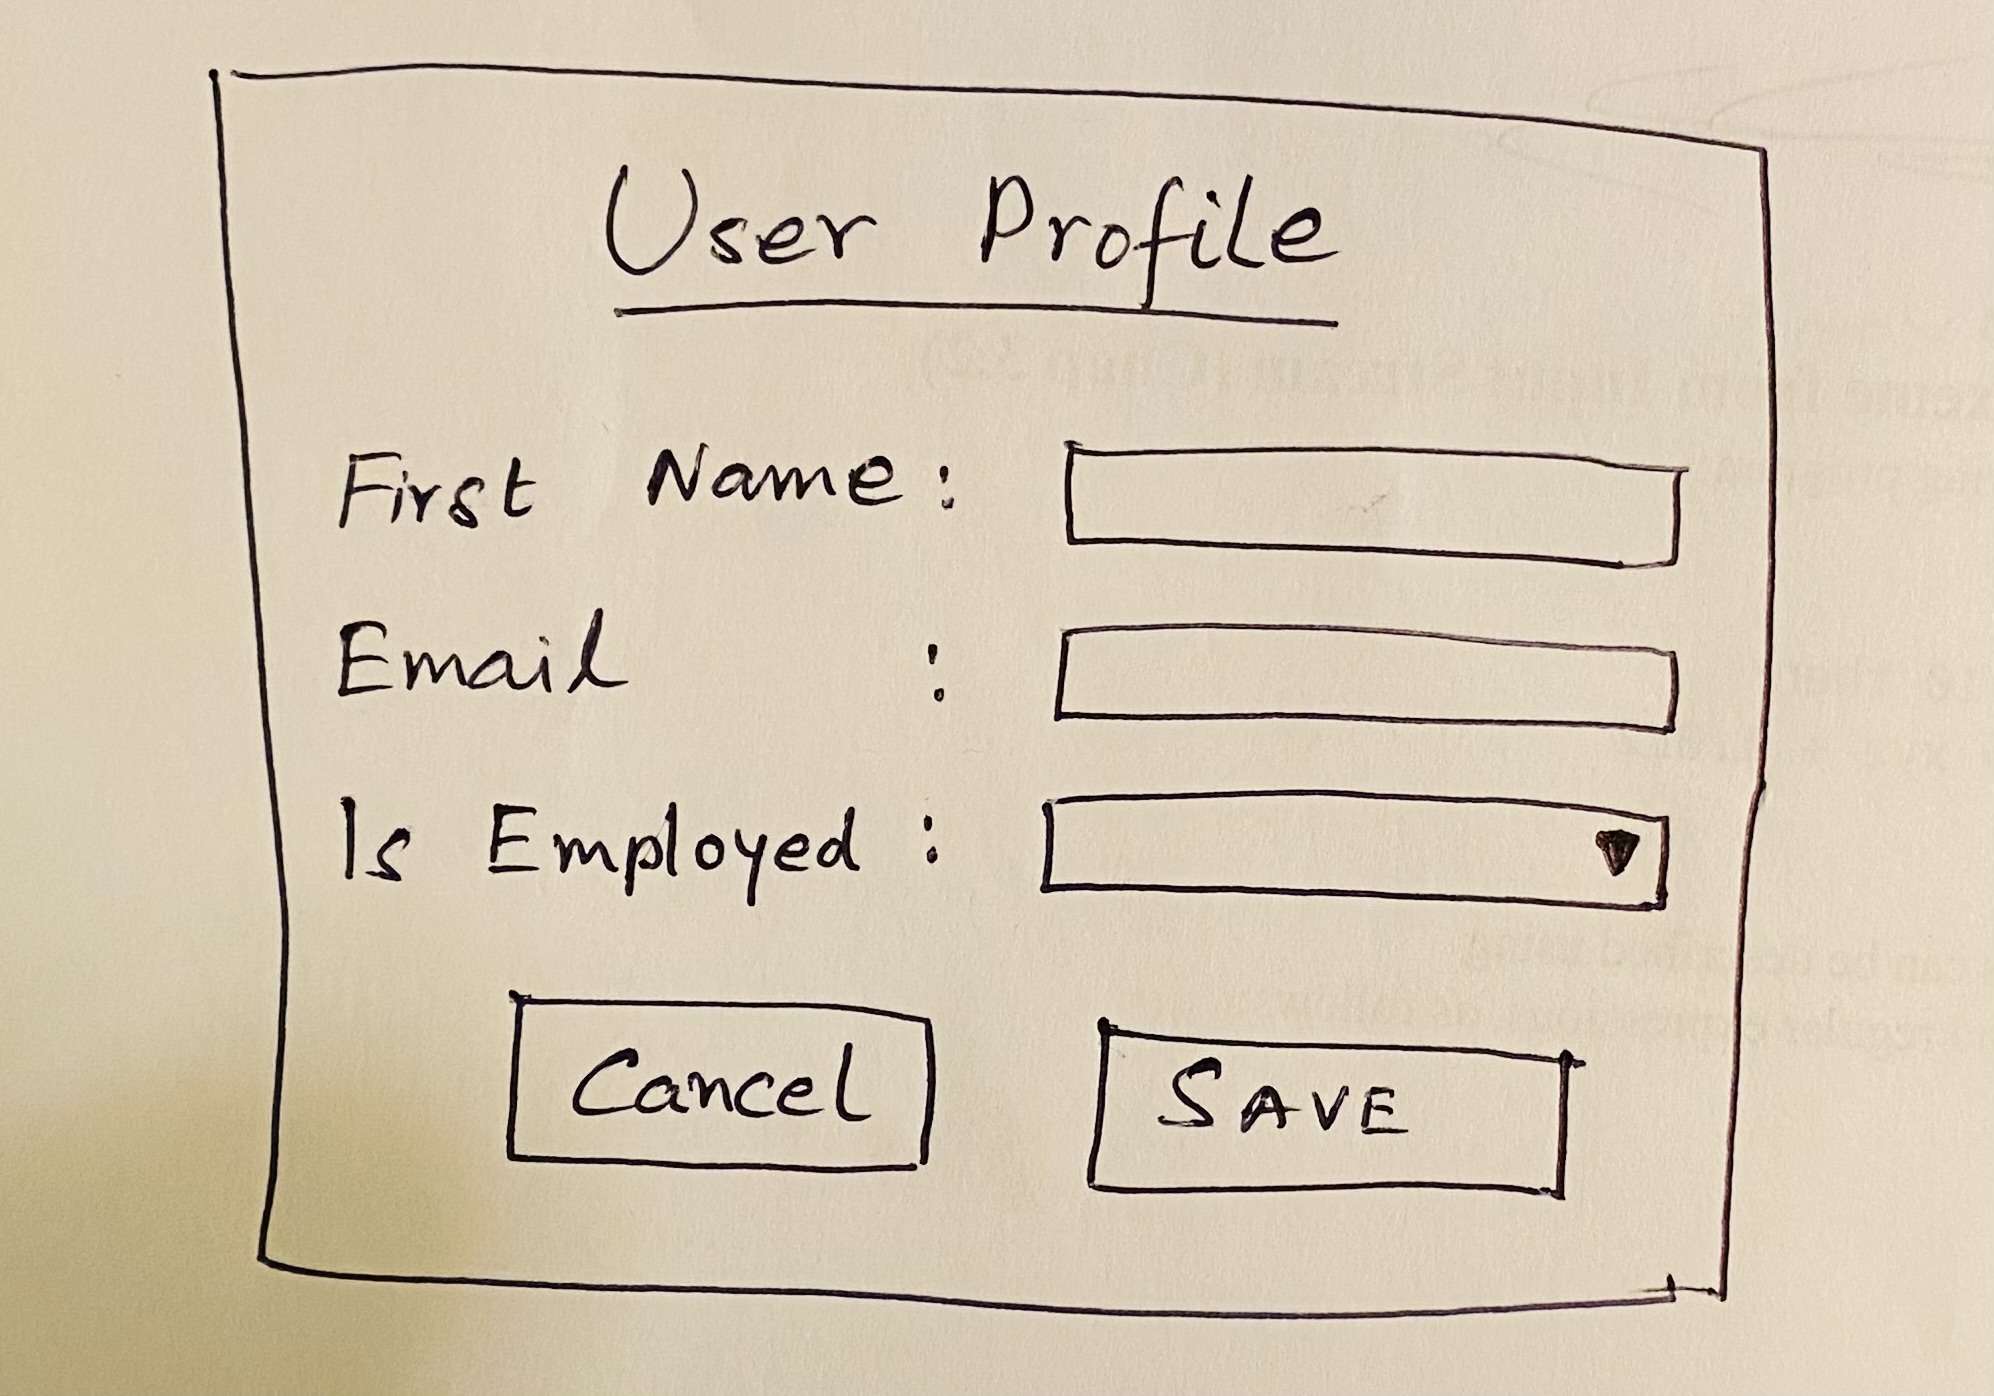 User Profile
First Name :
Email :
Is Employed :
Cancel
SAVE